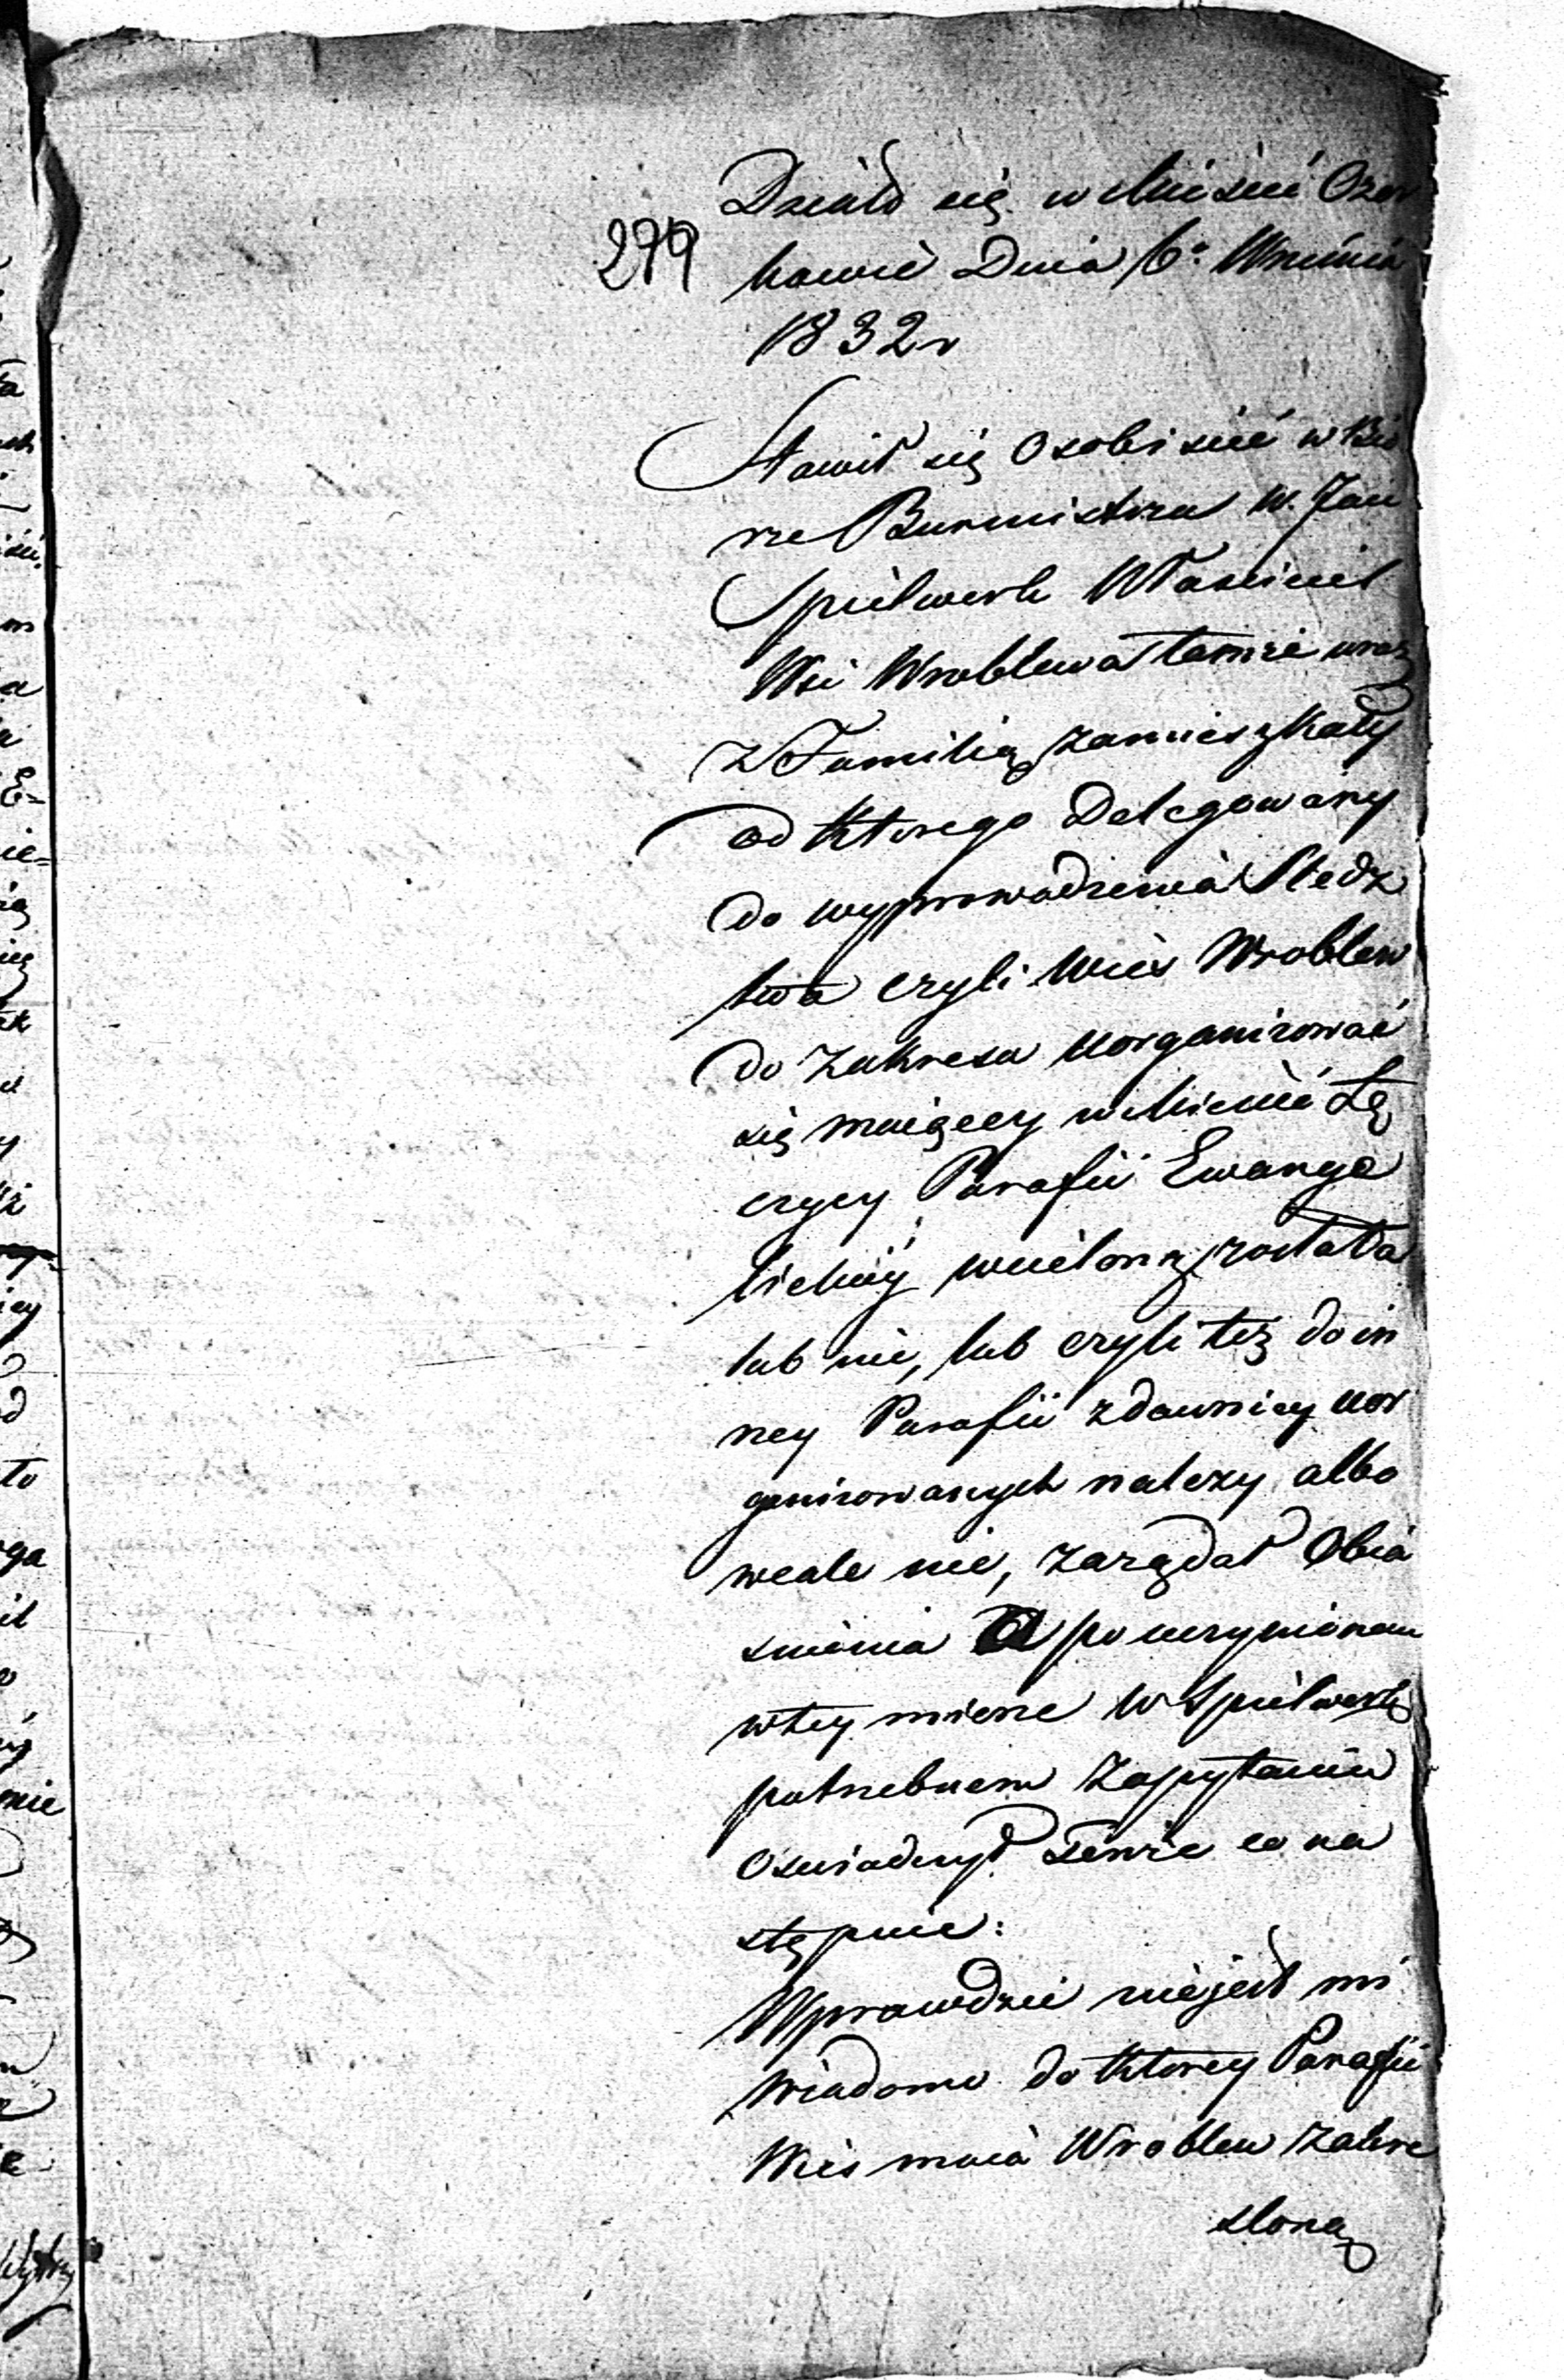 Działo się w Mieście Ozor
299 kowie Dnia 6º Wrzśnia
1832 r
Stawił się Osobiście w Bió
rze Burmistrza W. Jan
Spielwerk Właściciel
Wsi Wroblewa tamże wraz
z Familią zamieszkały
od którego Delegowany
do wyprowadzenia Sledz
twa czyli Wieś Wroblew
do Zakresu uorganizować
się maiącey w Mieście Łę
czycy Parafii Ewange
lickiéy wcieloną została
lub nie, lub czyli też do in
ney Parafii z dawniey uor
ganizowanych należy albo
wcale nie, zarządał Obia
śnienia a po uczynionem
w tey mierze W Spielwerk
potrzebnem Zapytaniu
Oświadczył tenże co na
stępuie:
Wprawdzie nie jest mi
wiadomo do którey Parafii
Wieś moia Wroblew zakre
sloną